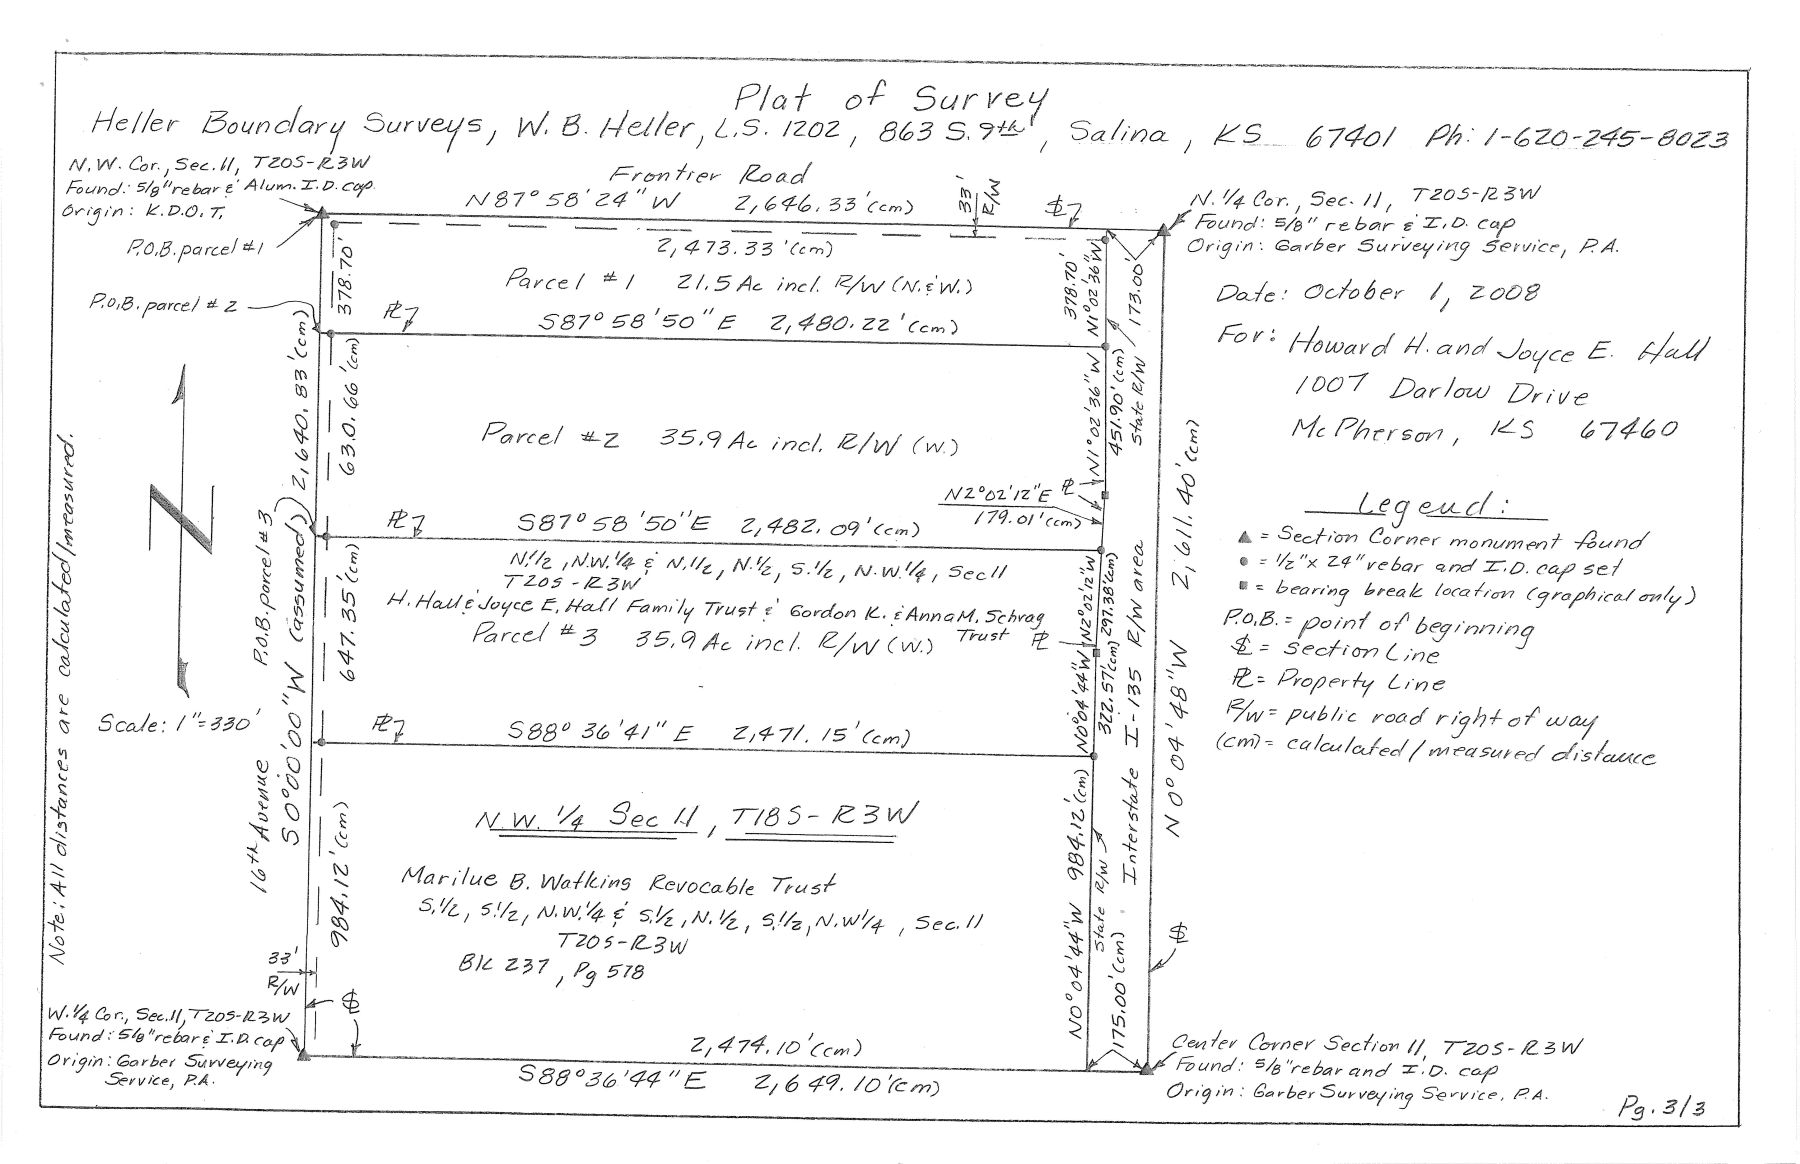 Plat of Survey
Heller Boundary Surveys, W. B. Heller, L.S. 1202, 863 S. 9th, Salina, KS 67401 Ph: 1-620-245-8023
N.W. Cor., Sec. 11, T20S-R3W
Found: 5/8" rebar & Alum. I.D. cap.
Origin: K.D.O.T.
P.O.B. parcel #1
P.O.B. parcel #2
Frontier Road
N87°58'24"W 2,646.33'(cm)
33'
R/W
2,473.33'(cm)
N. 1/4 Cor., Sec. 11, T20S-R3W
Found: 5/8" rebar & I.D. cap
Origin: Garber Surveying Service, P.A.
378.70'
Parcel #1 21.5 Ac incl. R/W (N.&W.)
378.70'
N1°02'36"W
173.00'
S87°58'50"E 2,480.22'(cm)
Date: October 1, 2008
For: Howard H. and Joyce E. Hall
1007 Darlow Drive
McPherson, KS 67460
630.66'(cm)
Parcel #2 35.9 Ac incl. R/W (W.)
N1°02'36"W
451.90'(cm)
State R/W
N2°02'12"E
179.01'(cm)
S87°58'50"E 2,482.09'(cm)
N.1/2, N.W.1/4 & N.1/2, N.1/2, S.1/2, N.W.1/4, Sec 11
T20S-R3W
H. Hall & Joyce E. Hall Family Trust & Gordon K. & Anna M. Schrag
Trust
Parcel #3 35.9 Ac incl. R/W (W.)
647.35'(cm)
N2°02'12"W
297.38'(cm)
N0°04'44"W
322.57'(cm)
S88°36'41"E 2,471.15'(cm)
N.W. 1/4 Sec 11, T18S-R3W
Marilue B. Watkins Revocable Trust
S.1/2, S.1/2, N.W.1/4 & S.1/2, N.1/2, S.1/2, N.W1/4, Sec. 11
T20S-R3W
BK 237, Pg 578
984.12'(cm)
N0°04'44"W 984.12'(cm)
State R/W
175.00'(cm)
Interstate I-135 R/W area
N0°04'48"W 2,611.40'(cm)
16th Avenue P.O.B. parcel #3
S0°00'00"W (assumed) 2,640.83'(cm)
Scale: 1"=330'
Note: All distances are calculated/measured.
33'
R/W
W. 1/4 Cor., Sec. 11, T20S-R3W
Found: 5/8" rebar & I.D. cap
Origin: Garber Surveying
Service, P.A.
2,474.10'(cm)
S88°36'44"E 2,649.10'(cm)
Center Corner Section 11, T20S-R3W
Found: 5/8" rebar and I.D. cap
Origin: Garber Surveying Service, P.A.
Legend:
▲ = Section Corner monument found
● = 1/2" x 24" rebar and I.D. cap set
■ = bearing break location (graphical only)
P.O.B. = point of beginning
SL = Section Line
PL = Property Line
R/W = public road right of way
(cm) = calculated/measured distance
Pg. 3/3